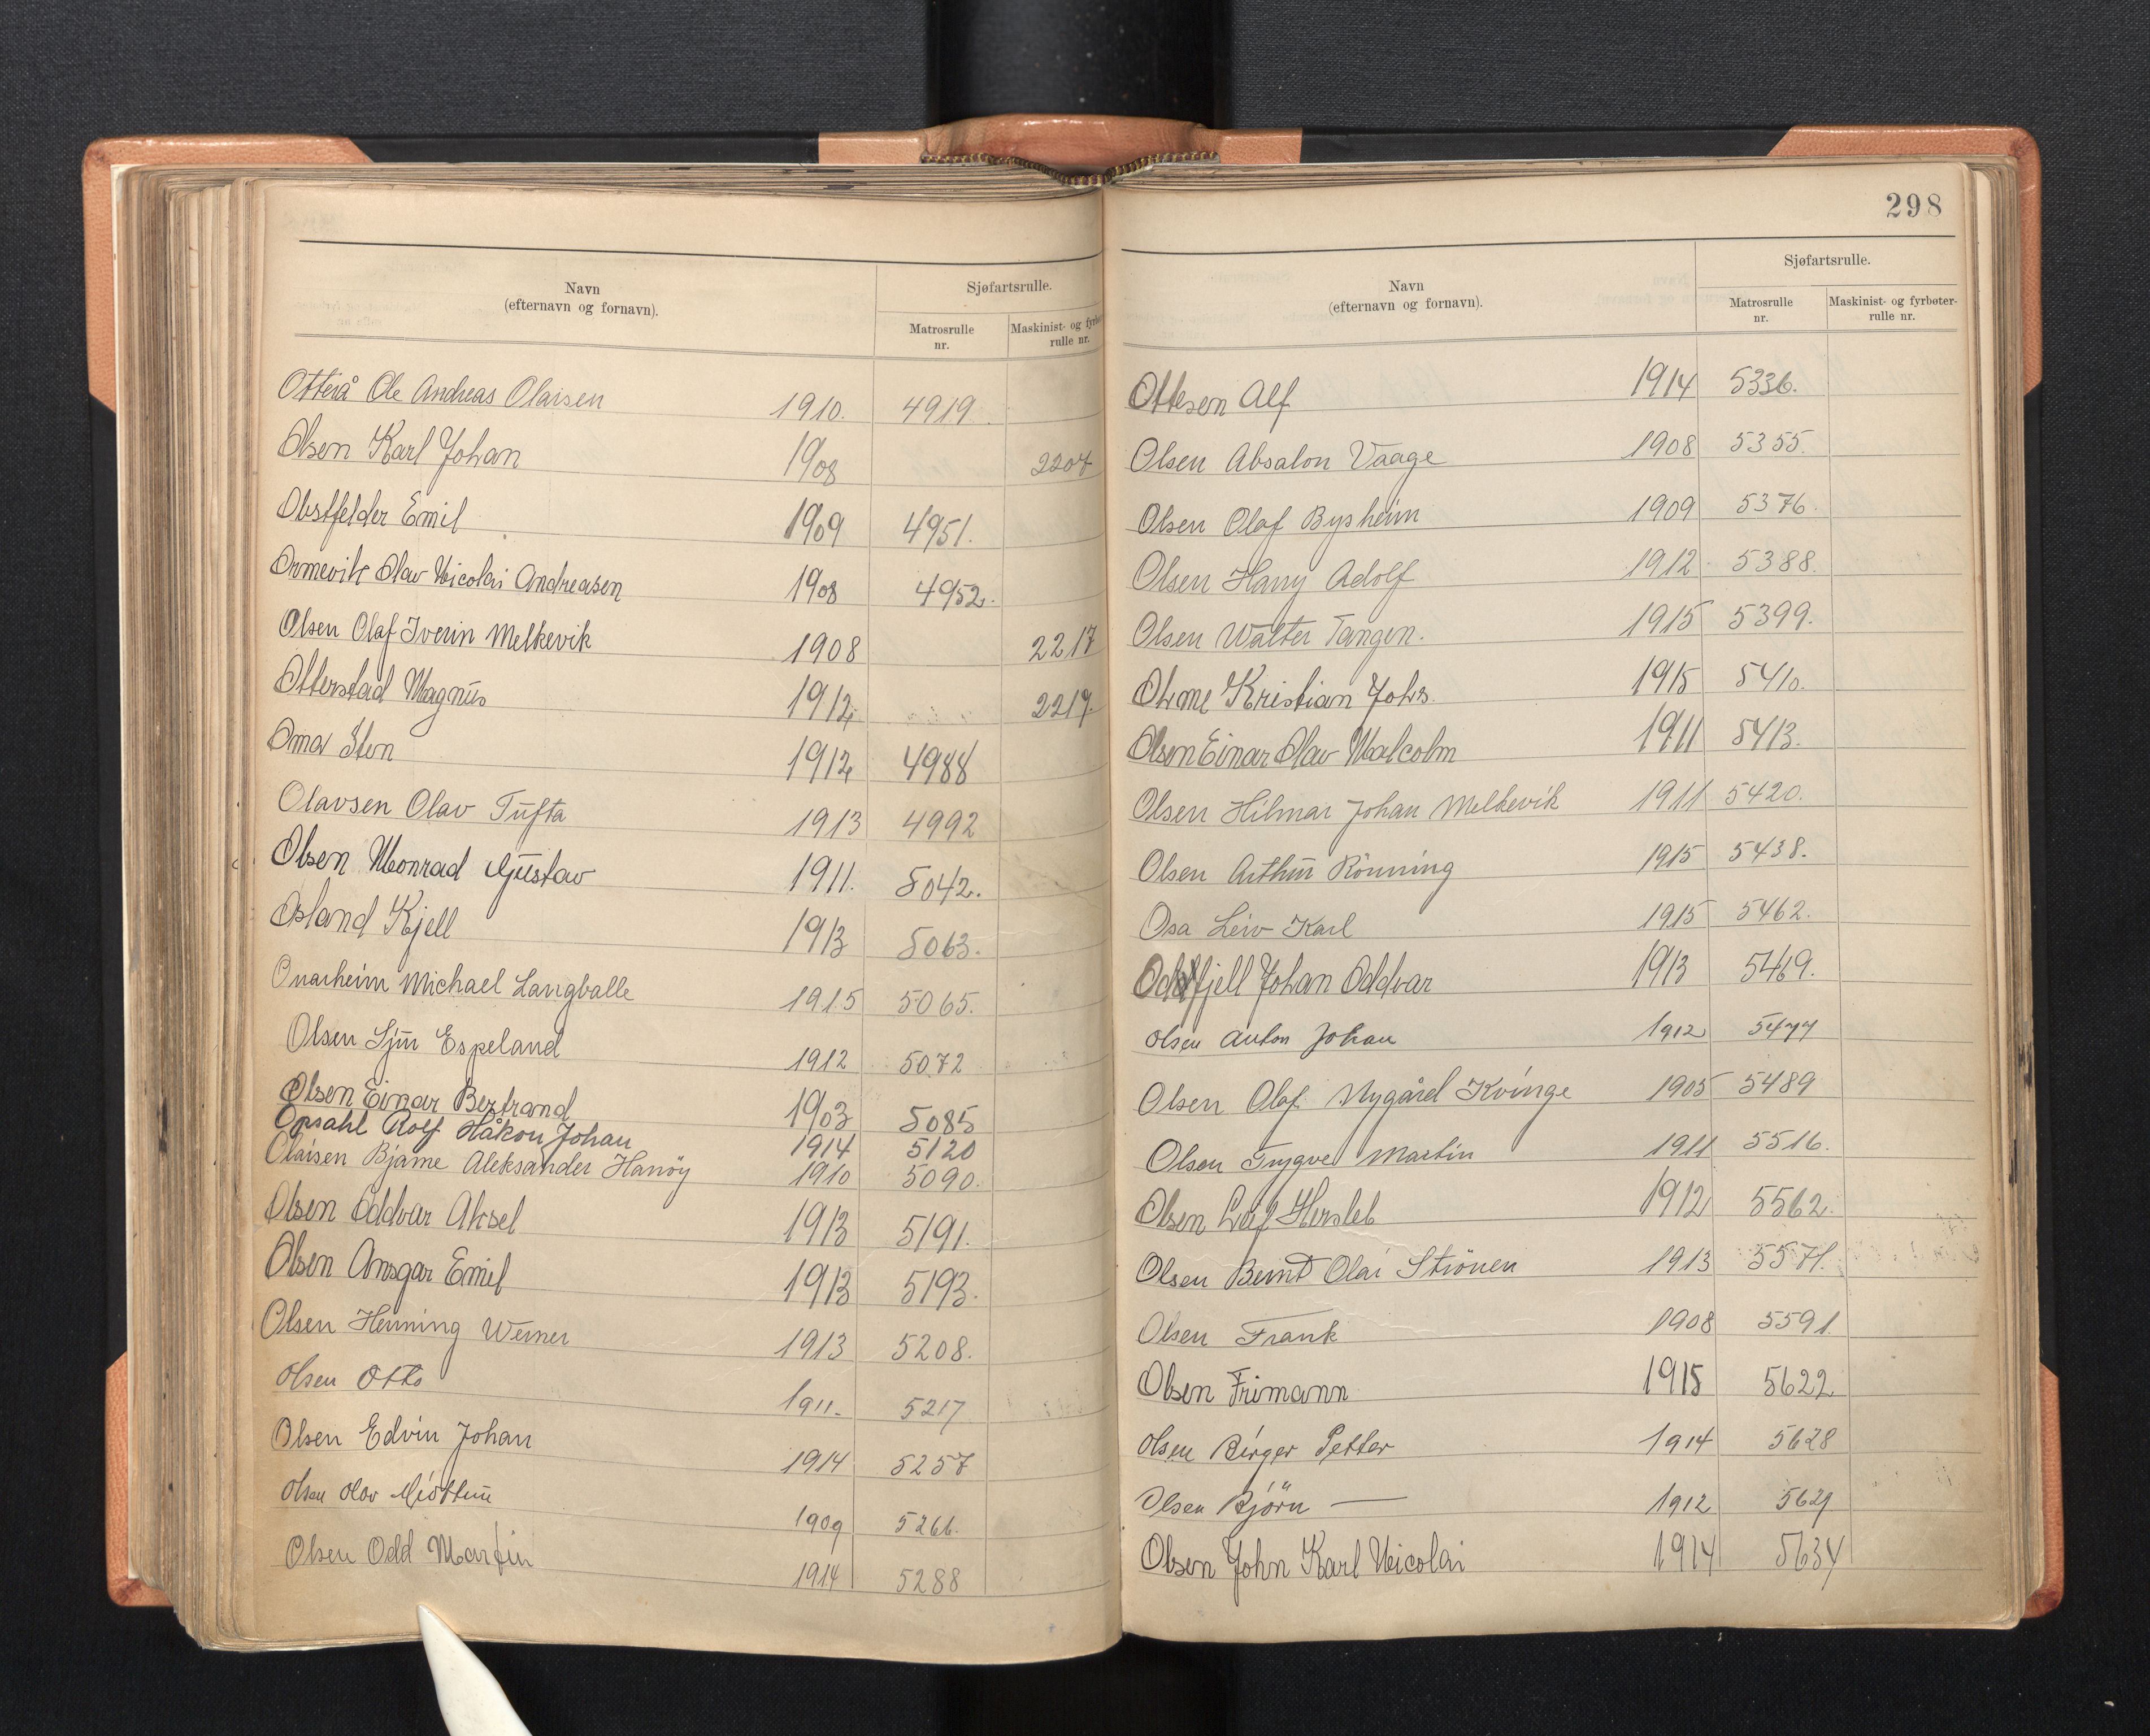 Navn
(efternavn og fornavn).
Sjøfartsrulle.
Matrosrulle
nr.
Maskinist- og fyrbøter-
rulle nr.
Otterå Ole Andreas Olaisen 1910. 4919.
Olsen Karl Johan 1908 2204
Obstfelder Emil 1909 4951.
Ormevik Olav Nicolai Andreasen 1908 4952.
Olsen Olaf Iverin Melkevik 1908 2217
Otterstad Magnus 1912. 2219.
Omar Sten 1912 4988
Olavsen Olav Tufta 1913 4992
Olsen Monrad Gustav 1911. 5042.
Osland Kjell 1913 5063.
Onarheim Michael Langballe 1915 5065.
Olsen Espeland 1912 5072
Olsen Einar Bertrand 1903 5085
Opsahl Rolf Håkon Johan 1914 5120
Olaisen Bjarne Aleksander Hanøy 1910 5090.
Olsen Oddvar Aksel 1913 5191.
Olsen Ansgar Emil 1913 5193.
Olsen Henning Werner 1913 5208.
Olsen Otto 1911. 5217
Olsen Edvin Johan 1914 5257
Olsen Olav 1909 5266.
Olsen Odd Martin 1914 5288
298
Navn
(efternavn og fornavn).
Sjøfartsrulle.
Matrosrulle
nr.
Maskinist- og fyrbøter-
rulle nr.
Ottesen Alf 1914 5336.
Olsen Absalon Vaage 1908 5355.
Olsen Olaf Bysheim 1909 5376.
Olsen Harry Adolf 1912 5388.
Olsen Walter Tangen. 1915 5399.
Ohme Kristian Johs. 1915 5410.
Olsen Einar Olav Malcolm 1911 5413.
Olsen Hilmar Johan Melkevik 1911 5420.
Olsen Arthur Rönning 1915 5438.
Osa Leiv Karl 1915 5462.
Oddfjell Johan Oddvar 1913 5469.
Olsen Anton Johan 1912 5477
Olsen Olaf Nygård Kvinge 1905 5489
Olsen Trygve Martin 1911 5516.
Olsen Leif Hersleb 1912 5562.
Olsen Bernt Olai Strönen 1913 5571.
Olsen Frank 1908 5591
Olsen Frimann 1915 5622
Olsen Birger Petter 1914 5628
Olsen Björn — 1912 5629
Olsen John Karl Nicolai 1914 5634